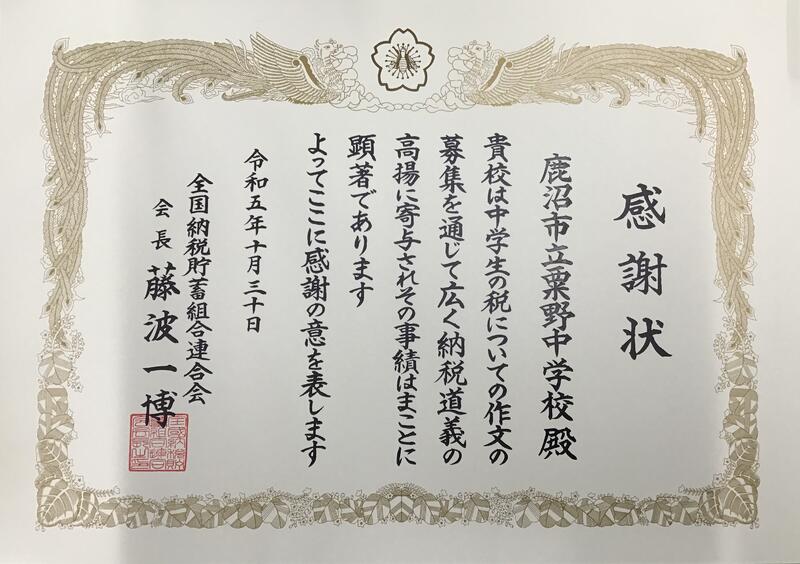 感謝状
鹿沼市立粟野中学校殿
貴校は中学生の税についての作文の
募集を通じて広く納税道義の
高揚に寄与されその事績はまことに
顕著であります
よってここに感謝の意を表します
令和五年十月三十日
全国納税貯蓄組合連合会
会長 藤波一博